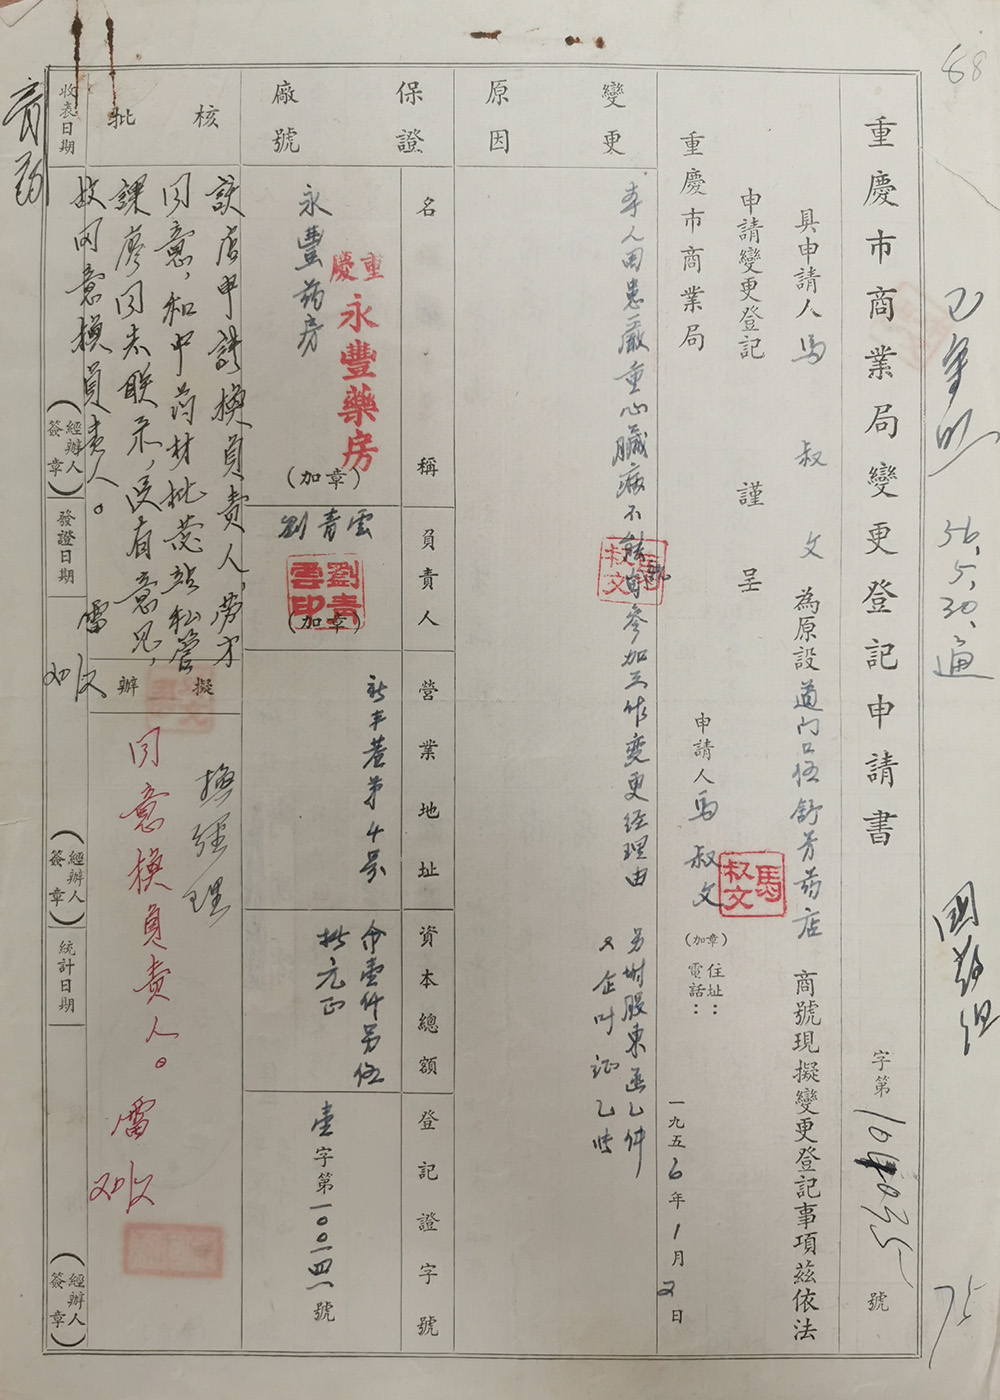 68
已登记 56.5.30.通
國药组
75
重慶市商業局變更登記申請書
字第104035號
具申請人馬叔文為原設道门口伍舒芳药店商號現擬變更登記事項茲依法
申請變更登記
謹呈
重慶市商業局
申請人馬叔文
(加章)
住址：
電話：
馬叔文
一九五6年1月2日
變更原因
本人因患嚴重心臟病不能參加工作變更经理由
另附股東函乙件
又企叶证乙件
馬叔文
保證廠號
名稱
永豐药房
重慶永豐藥房
(加章)
負責人
劉青雲
劉青雲印
(加章)
營業地址
新丰巷第4号
資本總額
登記證字號
壹字第一00一四一號
核批
該店申請換負責人,劳方
同意,和中药材批發站私管
課廖同志联系,没有意見,
故同意換負责人。
雷
擬辦
換經理
同意換負责人。
雷
收表日期
(經辦人簽章)
發證日期
(經辦人簽章)
統計日期
(經辦人簽章)